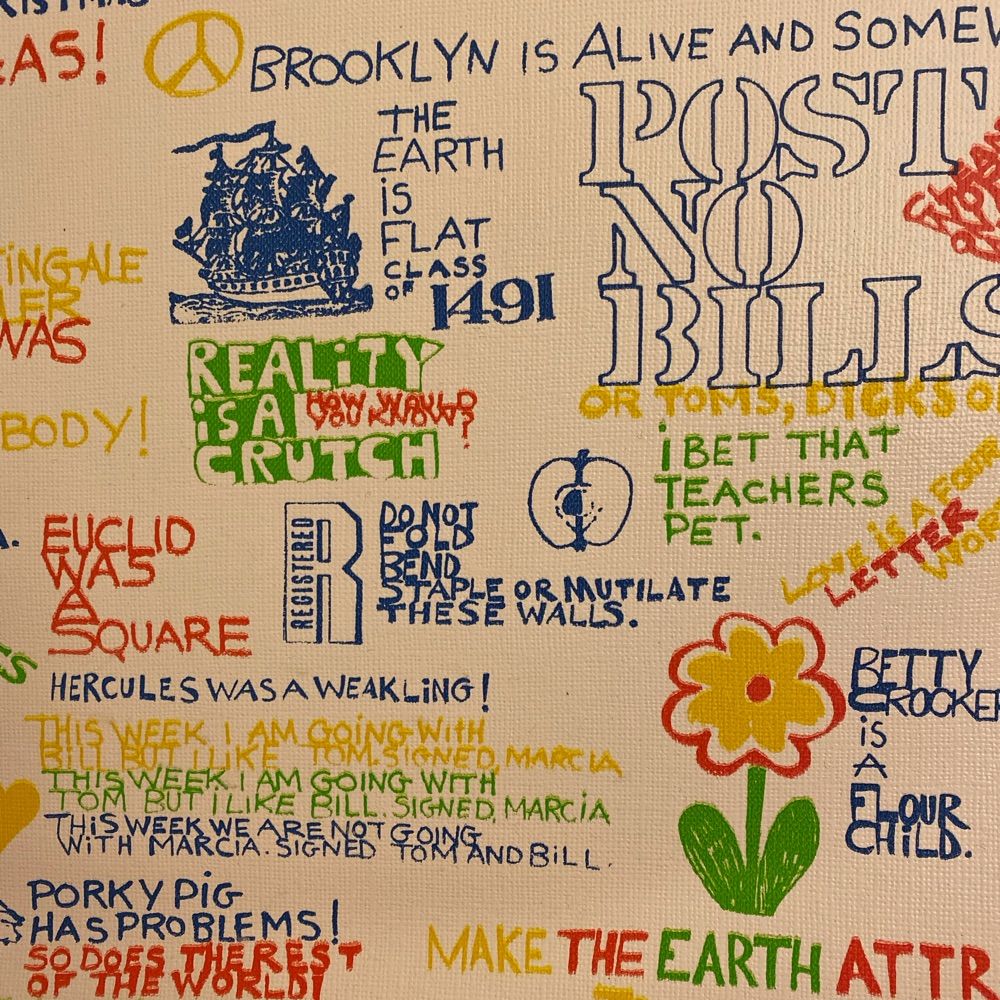 AS!
BROOKLYN IS ALIVE AND
THE
EARTH
iS
FLAT
CLASS
OF 1491
POST
NO
BILLS
OR TOMS, DICKS
WAS
REALiTY
iS A
CRUTCH
HOW WOULD
YOU KNOW?
BODY!
i BET THAT
TEACHERS
PET.
LOVE iS A FOUR
LETTER
EUCLID
WAS
A
SQUARE
REGISTERED
R
DO NOT
FOLD
BEND
STAPLE OR MUTILATE
THESE WALLS.
HERCULES WAS A WEAKLiNG!
THIS WEEK I AM GOING WiTH
BILL BUT I LIKE TOM. SIGNED, MARCIA
THIS WEEK I AM GOING WITH
TOM BUT i LIKE BILL. SIGNED, MARCiA
THiS WEEK WE ARE NOT GOING
WiTH MARCIA. SIGNED TOM AND BiLL.
BETTY
CROCKER
iS
A
FLOUR
CHiLD.
PORKY PiG
HAS PROBLEMS!
SO DOES THE REST
OF THE WORLD!
MAKE THE EARTH